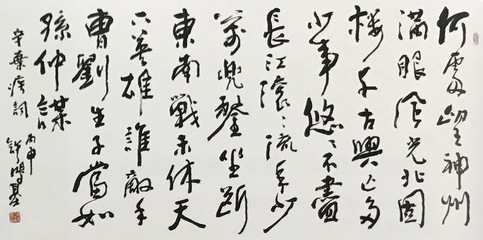 何處望神州
滿眼風光北固
樓千古興亡多
少事悠々不盡
長江滾々流年少
萬兜鍪坐斷
東南戰未休天
下英雄誰敵手
曹劉生子當如
孫仲謀
辛棄疾詞
丙申
許